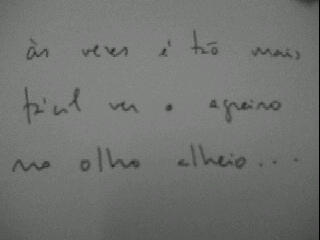 às vezes é tão mais
fácil ver o argueiro
no olho alheio...